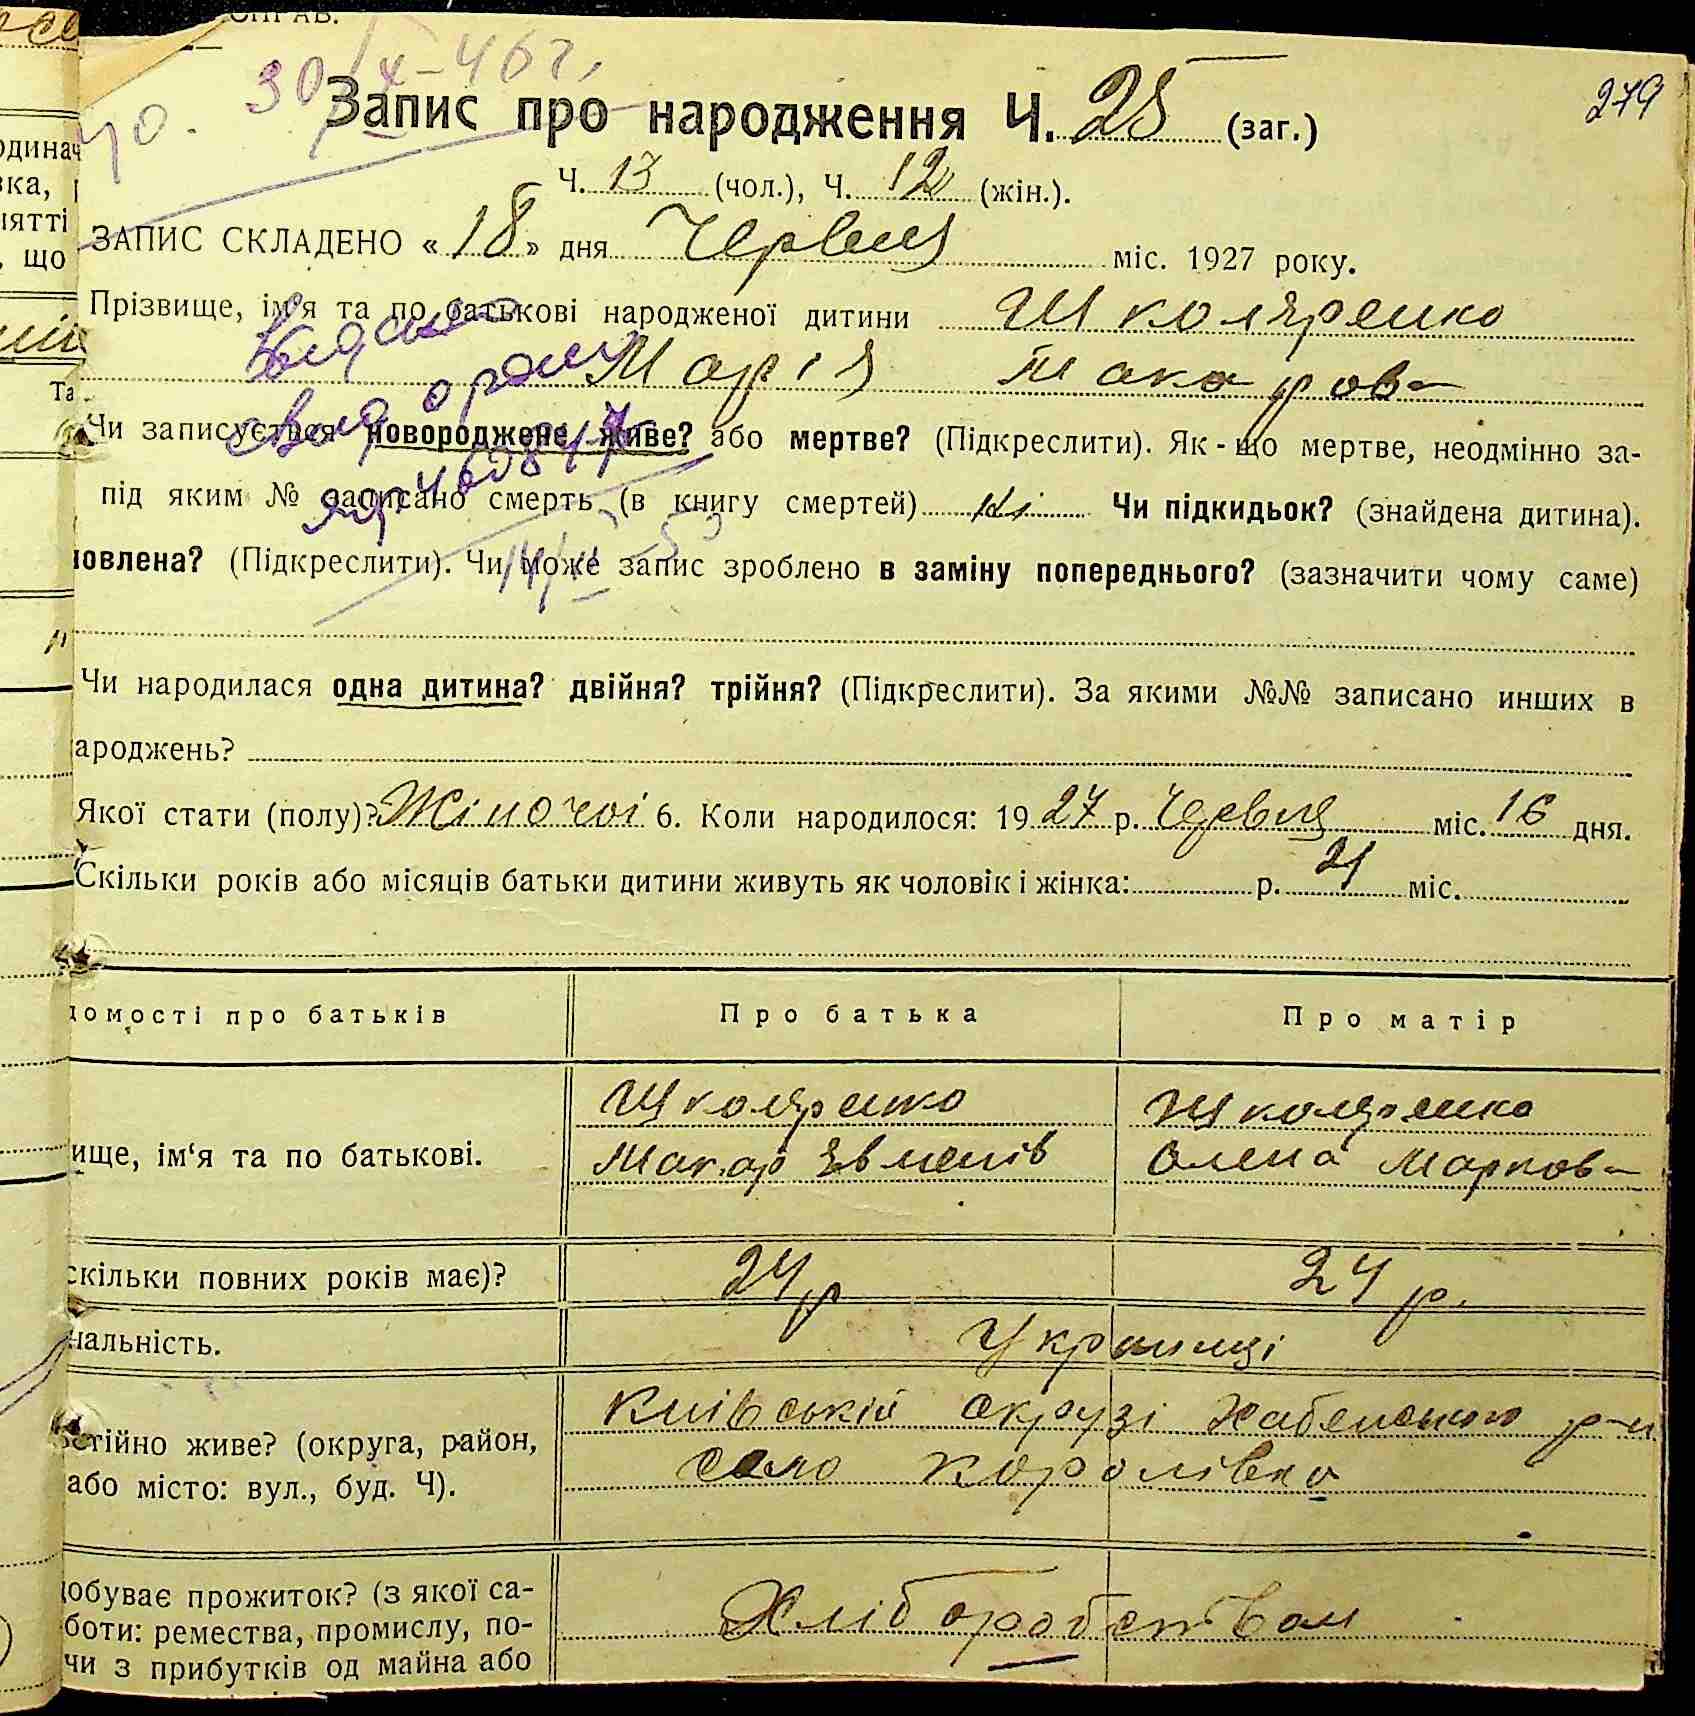 СПРАВ.
30/X-46 г.
279
Запис про народження Ч. 25 (заг.)
Ч. 13 (чол.), Ч. 12 (жін.).
ЗАПИС СКЛАДЕНО «18» дня Червня міс. 1927 року.
Прізвище, ім'я та по батькові народженої дитини Школяренко
Марія Макаров-
Чи записується новороджене живе? або мертве? (Підкреслити). Як-що мертве, неодмінно за-
під яким № записано смерть (в книгу смертей) Ні Чи підкидьок? (знайдена дитина).
новлена? (Підкреслити). Чи може запис зроблено в заміну попереднього? (зазначити чому саме)
Чи народилася одна дитина? двійня? трійня? (Підкреслити). За якими №№ записано инших в
ароджень?
Якої стати (полу)? Жіночої 6. Коли народилося: 1927 р. Червня міс. 16 дня.
Скільки років або місяців батьки дитини живуть як чоловік і жінка: р. 4 міс.
домості про батьків Про батька Про матір
Школяренко Школяренко
ище, ім'я та по батькові. Макар Евменів Олена Марков-
скільки повних років має)? 24 р 24 р.
нальність. Українці
Київській окрузі Хабенського р-н
стійно живе? (округа, район, село Королівка
або місто: вул., буд. Ч).
добуває прожиток? (з якої са-
боти: ремества, промислу, по- Хліборобством
чи з прибутків од майна або